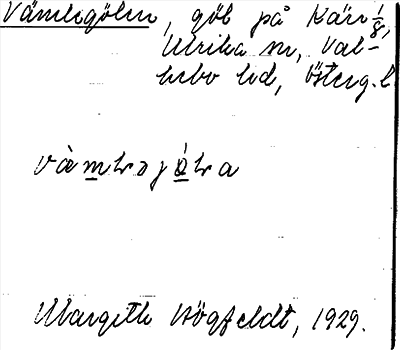 Vämlegölen, göl på Kärr 1/8,
Ulrika sn, Val-
kebo hd, Österg.l.
Margith Högfeldt, 1929.